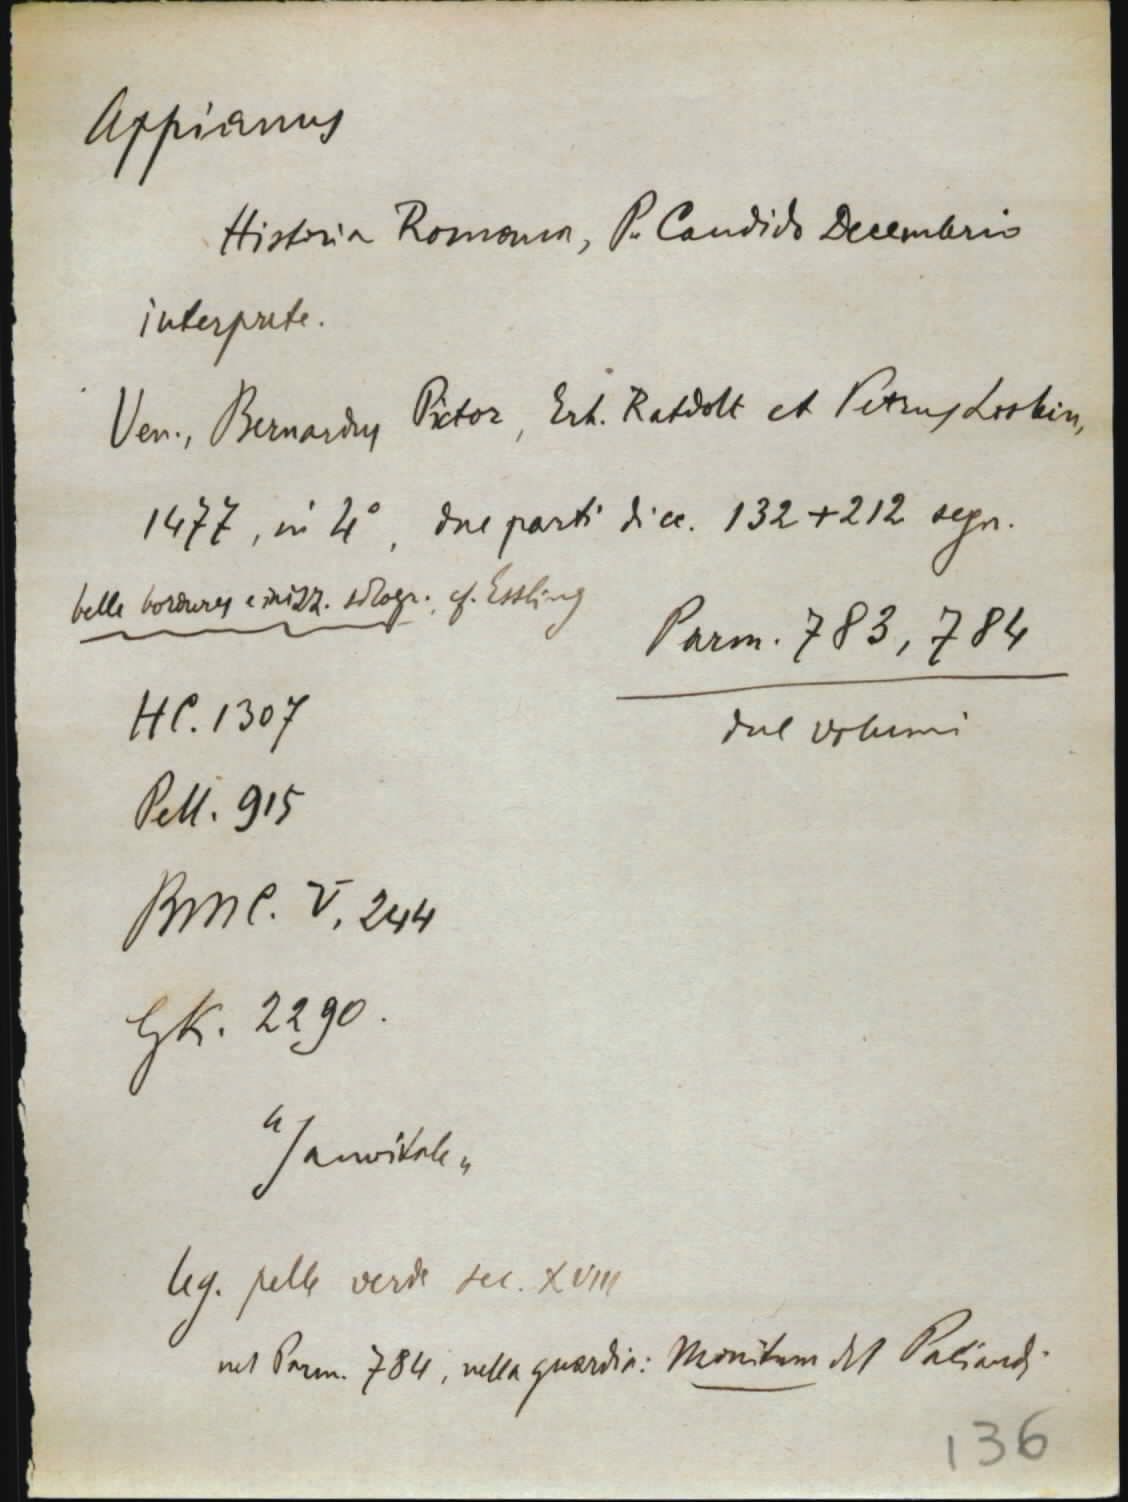 Appianus
Historia Romana, P. Candido Decembrio
interprete.
Ven., Bernardus Pictor, Erh. Ratdolt et Petrus Loslein,
1477, in 4°, due parti di cc. 132 + 212 segn.
belle bordures e inizz. silogr. cf. Essling
Parm. 783, 784
due volumi
HC. 1307
Pell. 915
BMC. V, 244
GK. 2290.
"Sanvitale"
leg. pelle verde sec. XVIII
nel Parm. 784, nella guardia: Monitum del Paciaudi
136